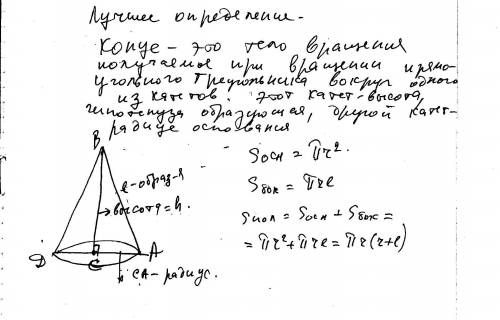 Лучшее определение.
Конус - это тело вращения
получаемое при вращении прямо-
угольного треугольника вокруг одного
из катетов. Этот катет-высота,
гипотенуза образующая, другой катет-
радиус основания
B
l-образ-я
высота=h.
D
C
A
CA-радиус.
Sосн = πr².
Sбок = πrl
Sпол = Sосн + Sбок =
= πr²+πrl = πr(r+l)